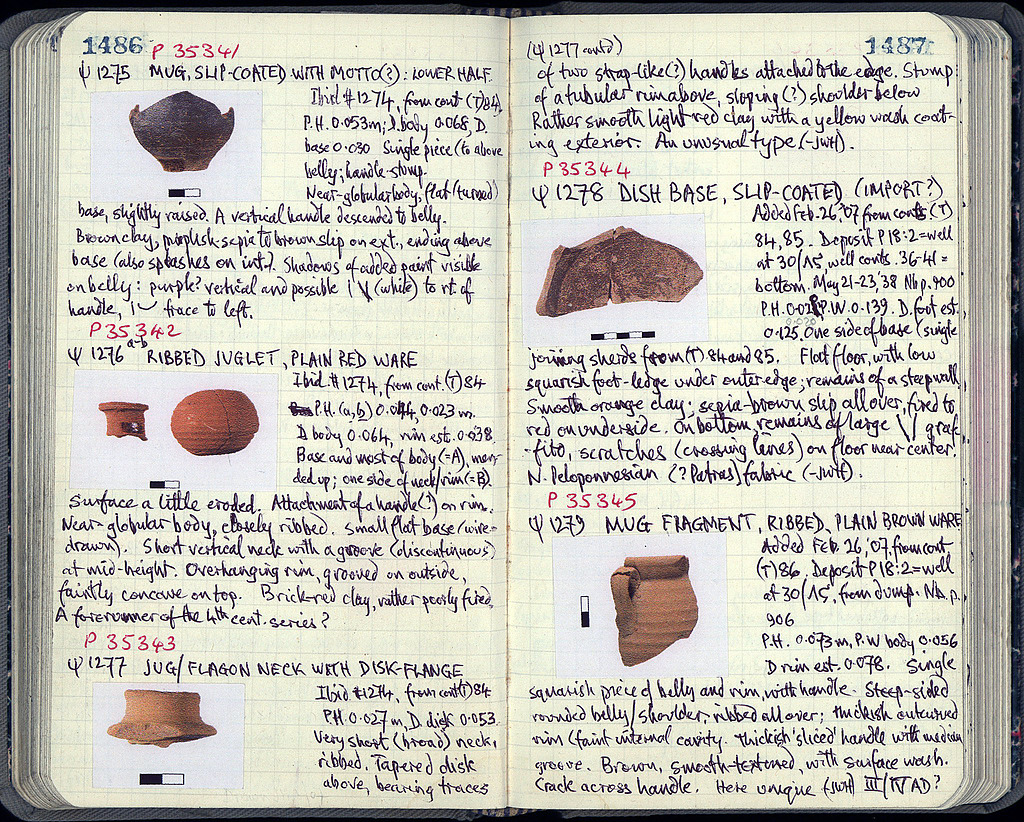 1486 P 35341
Ψ 1275 MUG, SLIP-COATED WITH MOTTO(?): LOWER HALF.
Ibid #1274, from cont (T) 84,
P.H. 0.053m; D. body 0.068, D.
base 0.030 Single piece (to above
belly; handle-stump.
Near-globular body, flat (turned)
base, slightly raised. A vertical handle descended to belly.
Brown clay, purplish-sepia to brown slip on ext., ending above
base (also splashes on int.). Shadows of added paint visible
on belly: purple? vertical and possible (white) to rt. of
handle, trace to left.
P 35342
Ψ 1276 a-b RIBBED JUGLET, PLAIN RED WARE
Ibid. #1274, from cont. (T) 84
P.H. (a, b) 0.044, 0.023 m.
D body 0.064, rim est. 0.038.
Base and most of body (=A), men-
ded up; one side of neck/rim (=B).
Surface a little eroded. Attachment of a handle (?) on rim.
Near-globular body, closely ribbed. Small flat base (wire-
drawn). Short vertical neck with a groove (discontinuous)
at mid-height. Overhanging rim, grooved on outside,
faintly concave on top. Brick-red clay, rather poorly fired.
A forerunner of the 4th cent. series?
P 35343
Ψ 1277 JUG/FLAGON NECK WITH DISK-FLANGE
Ibid #1274, from cont (T) 84
P.H. 0.027 m, D. disk 0.053.
Very short (broad) neck,
ribbed. Tapered disk
above, bearing traces
(Ψ 1277 contd) 1487
of two strap-like(?) handles attached to the edge. Stump
of a tubular rim above, sloping (?) shoulder below
Rather smooth light-red clay with a yellow wash coat-
ing exterior. An unusual type (-JWH).
P 35344
Ψ 1278 DISH BASE, SLIP-COATED (IMPORT?)
Added Feb. 26, '07 from conts (T)
84, 85. Deposit P 18:2 = well
at 30/ΛΕ, well conts. 36-41 =
bottom. May 21-23, '38 Nb p. 900
P.H. P.W. 0.139. D. foot est.
0.125. One side of base (single
joining sherds from (T) 84 and 85. Flat floor, with low
squarish foot-ledge under outer edge; remains of a steep wall.
Smooth orange clay; sepia-brown slip all over, fired to
red on underside. On bottom, remains of large \/ graf-
fito, scratches (crossing lines) on floor near center.
N. Peloponnesian (? Patras) fabric (-JWH).
P 35345
Ψ 1279 MUG FRAGMENT, RIBBED, PLAIN BROWN WARE
Added Feb. 26, '07, from cont
(T) 86. Deposit P 18:2 = well
at 30/ΛΕ, from dump. Nb. p.
906
P.H. 0.073 m, P.W body 0.056
D rim est. 0.078. Single
squarish piece of belly and rim, with handle. Steep-sided
rounded belly/shoulder, ribbed all over; thickish outcurved
rim (faint internal cavity. Thickish 'sliced' handle with median
groove. Brown, smooth-textured, with surface wash.
Crack across handle. Here unique (-JWH) III/IV AD?